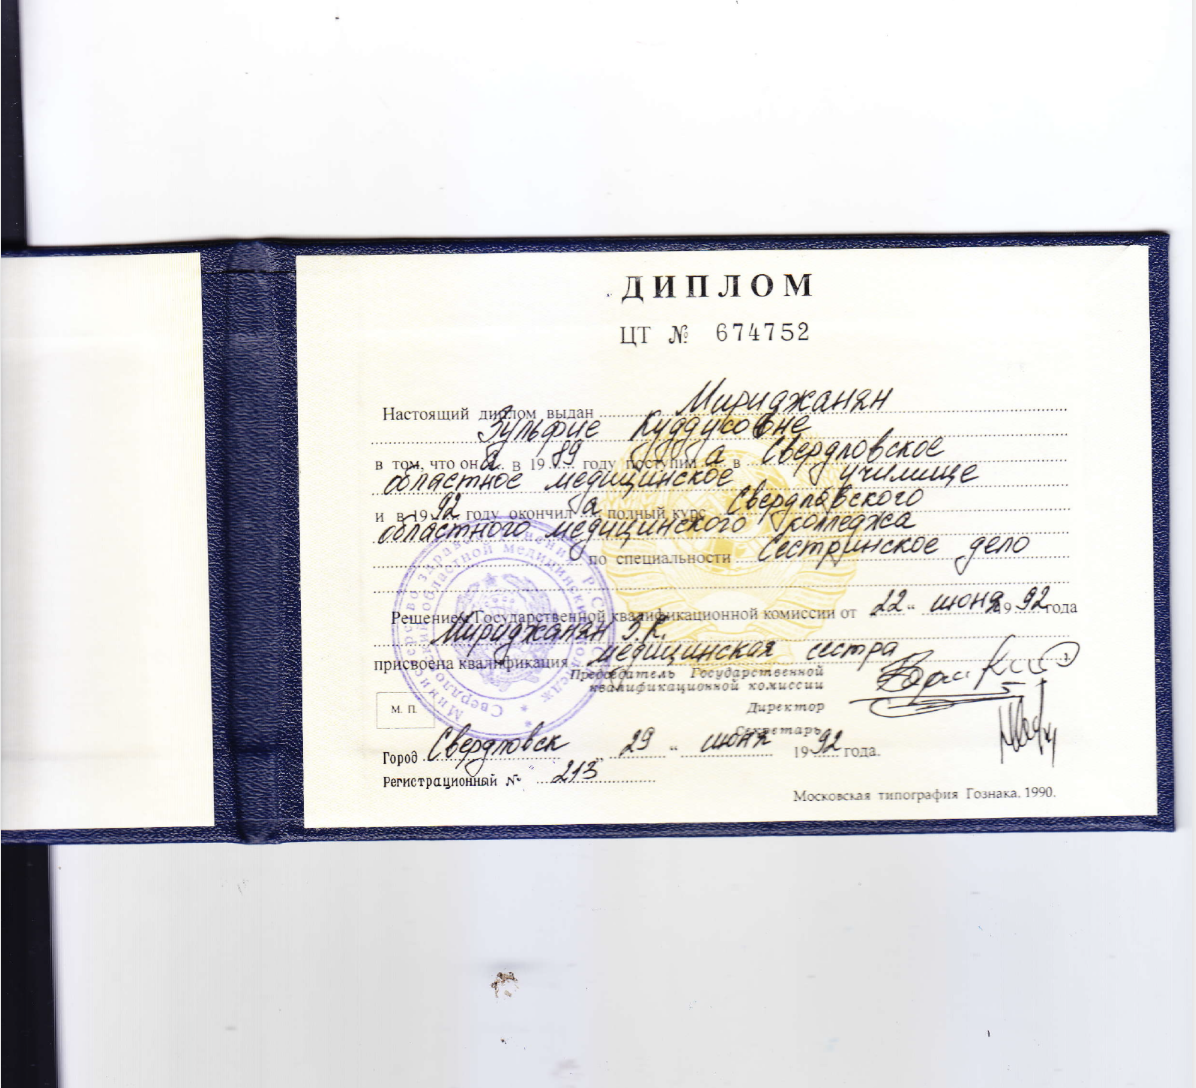 ДИПЛОМ
ЦТ № 674752
Настоящий диплом выдан Мириджанян
Зульфие Куддусовне
в том, что она в 1989 году поступила в Свердловское
областное медицинское училище
и в 1992 году окончила полный курс Свердловского
областного медицинского колледжа
по специальности Сестринское дело
Решением Государственной квалификационной комиссии от 22 " июня 1992 года
Мириджанян З.К.
присвоена квалификация медицинская сестра
Председатель Государственной
квалификационной комиссии
Директор
Секретарь
М. П.
Город Свердловск " 29 " июня 1992 года.
Регистрационный № 213
Московская типография Гознака. 1990.